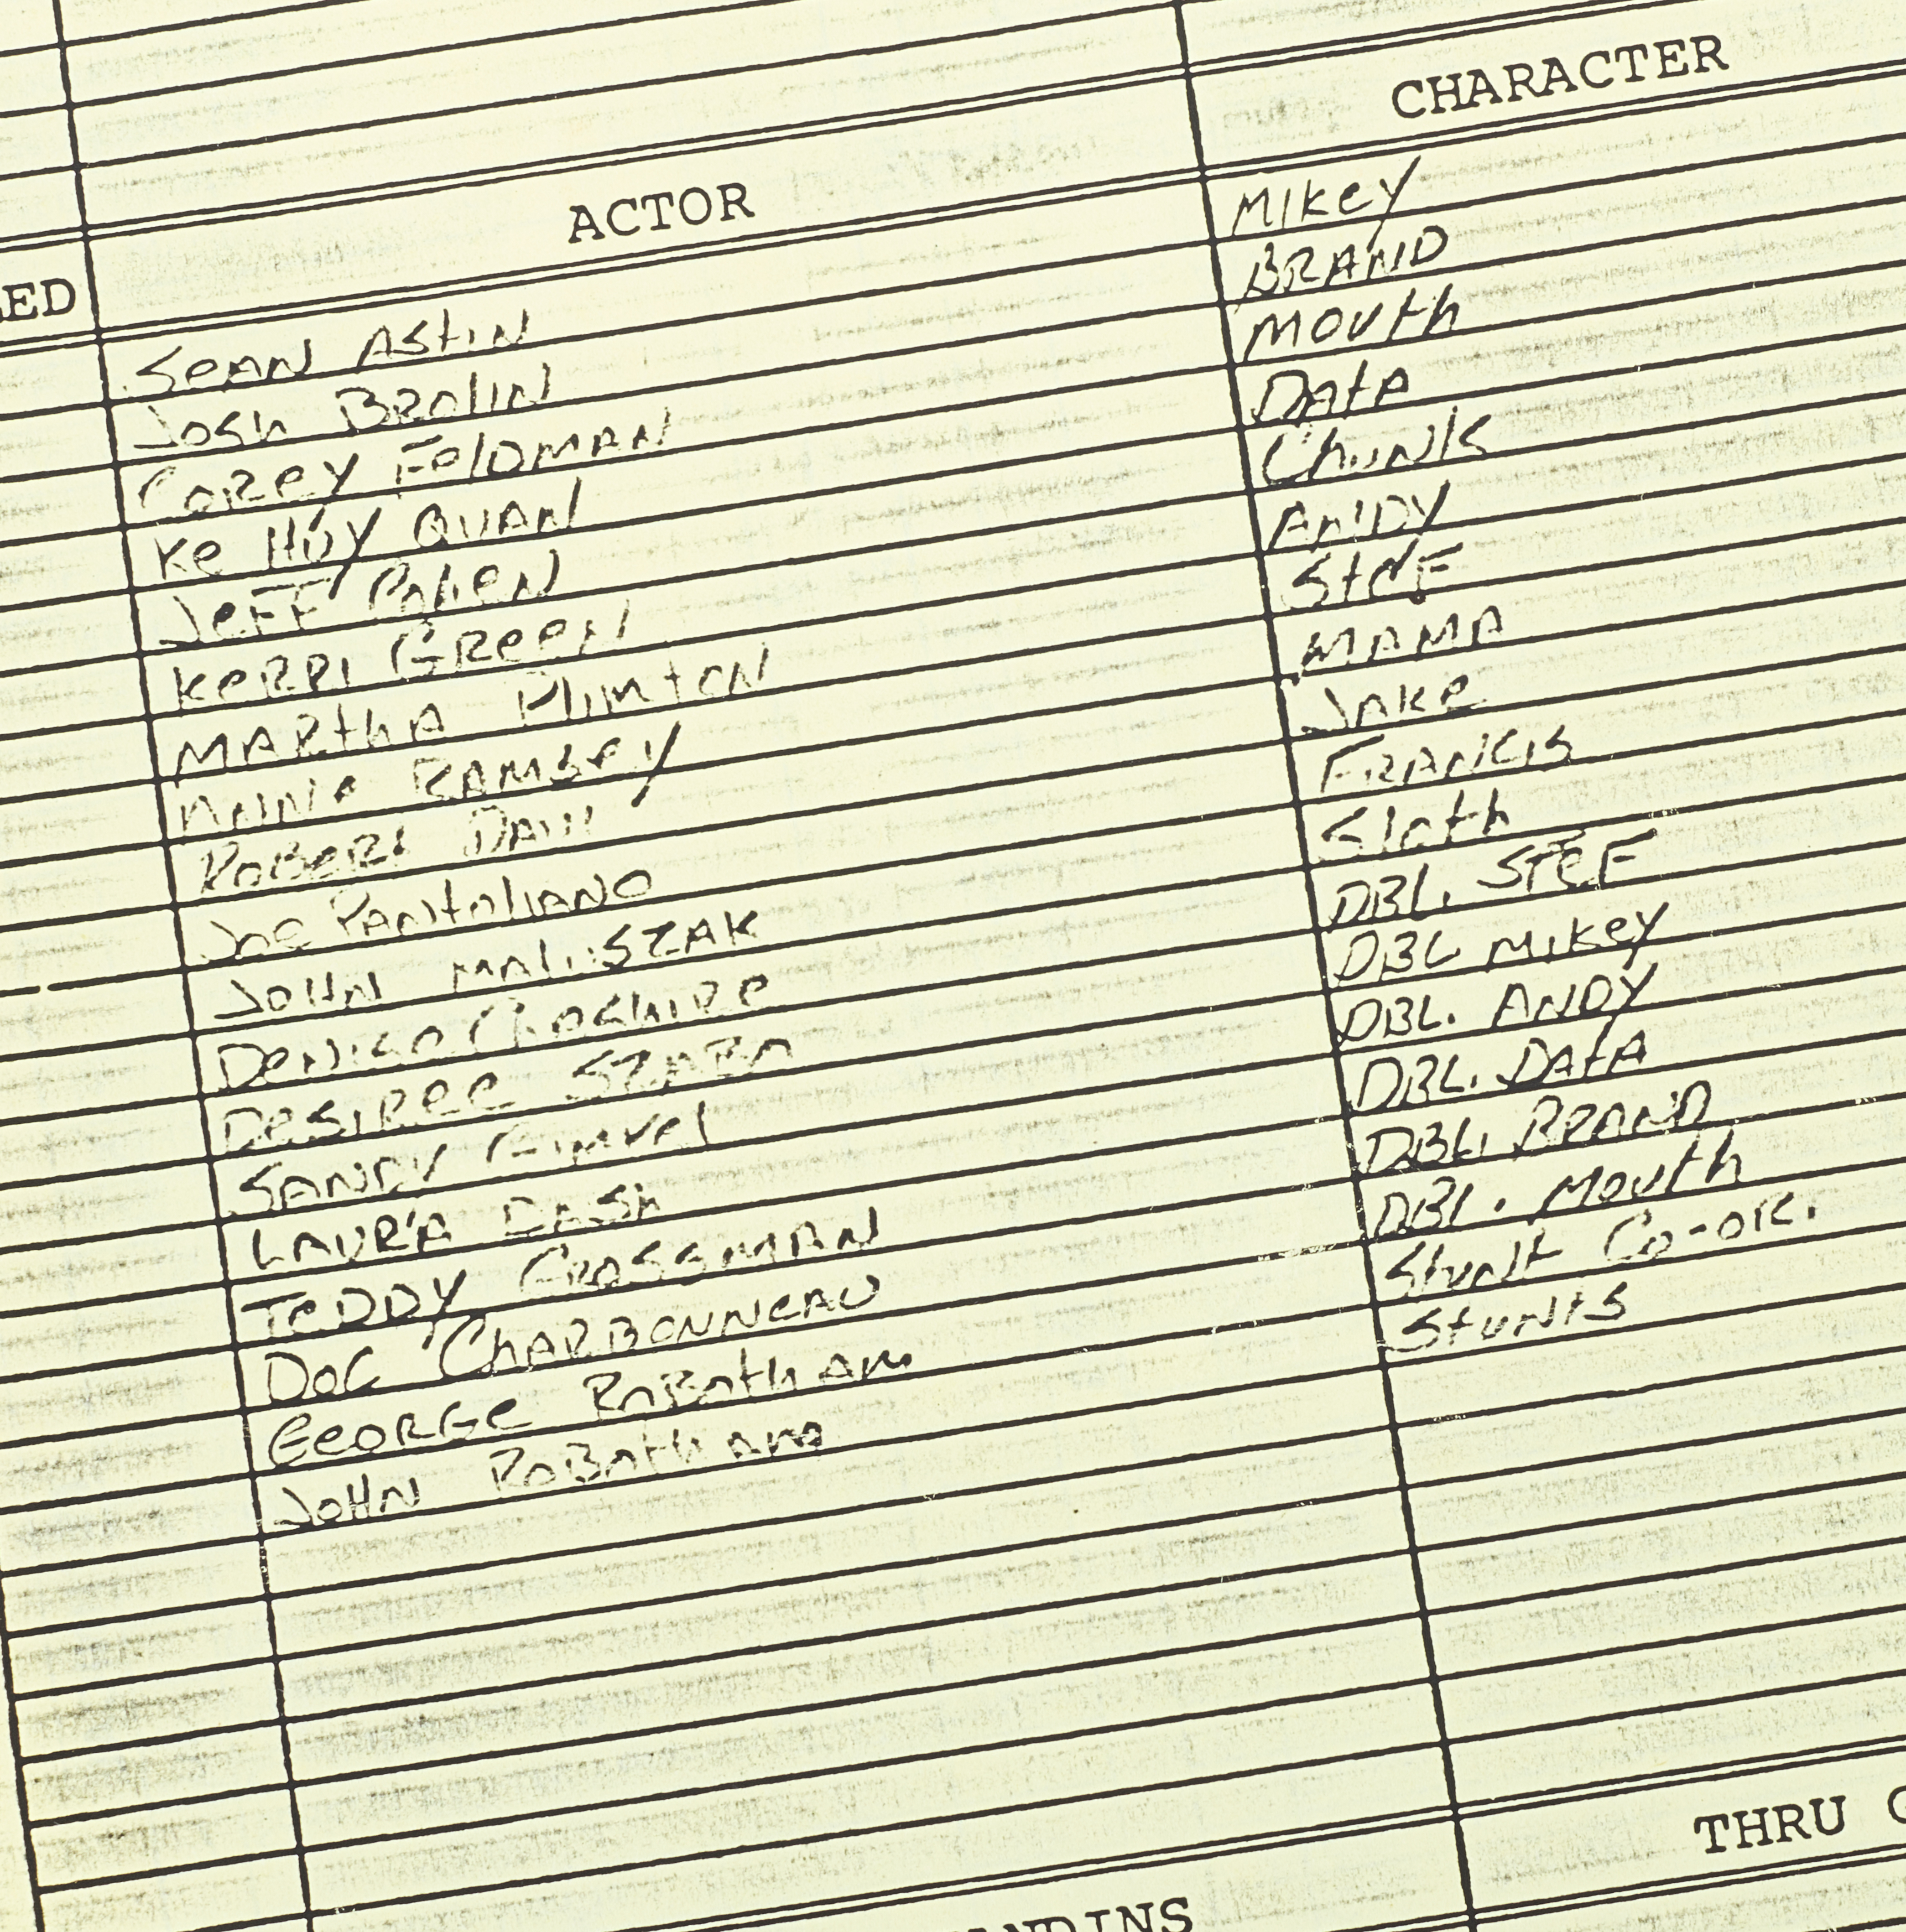 CHARACTER
ACTOR
SEAN ASTIN MIKEY
JOSH BROLIN BRAND
COREY FELDMAN MOUTH
KE HUY QUAN DATA
JEFF COHEN CHUNK
KERRI GREEN ANDY
MARTHA PLIMTON STEF
RAMSEY MAMA
ROBERT DAVI JAKE
JOE PANTOLIANO FRANCIS
JOHN SLOTH
DENISE CHESHIRE DBL. STEF
DESIREE SZABO DBL MIKEY
SANDY DBL. ANDY
LAURA DASH DBL. DATA
TEDDY GROSSMAN DBL. BRAND
DOC CHARBONNEAU DBL. MOUTH
GEORGE ROBOTHAM STUNT CO-OR.
JOHN ROBOTHAM STUNTS
THRU